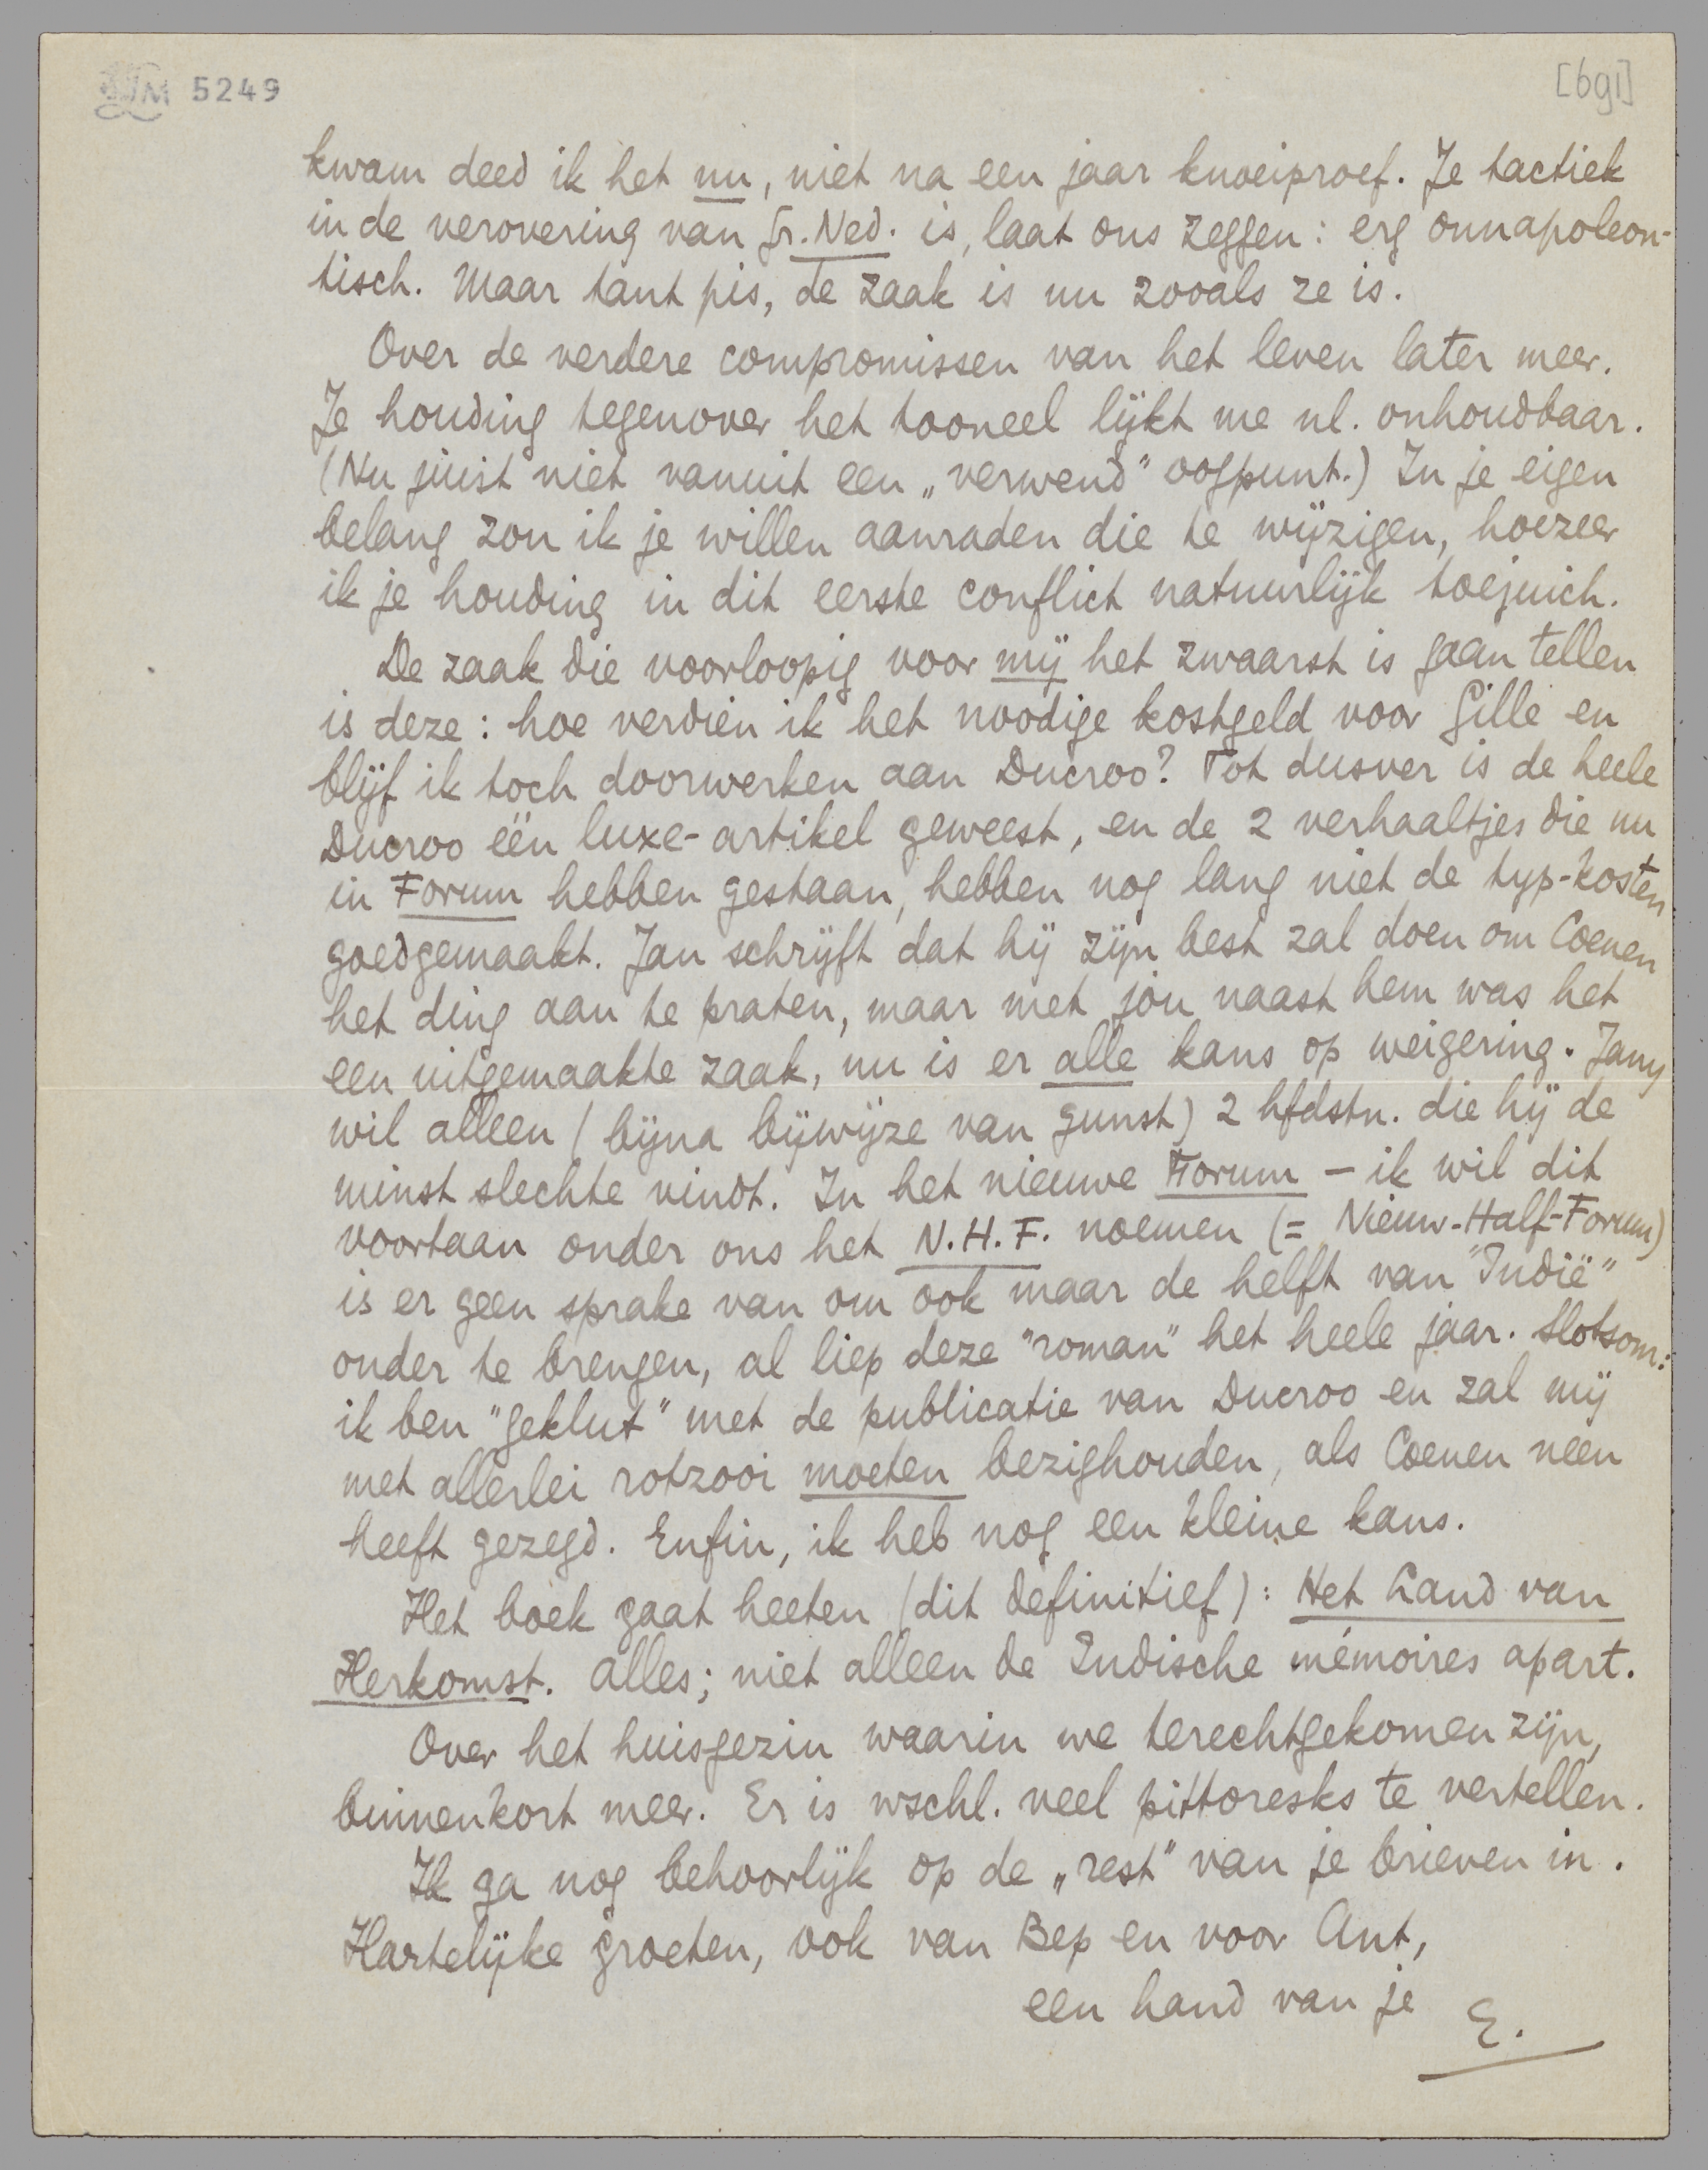 LM 5249
[691]
kwam deed ik het nu, niet na een jaar knoeiproef. Je tactiek
in de verovering van Gr. Ned. is, laat ons zeggen: erg onnapoleon-
tisch. Maar tant pis, de zaak is nu zooals ze is.
Over de verdere compromissen van het leven later meer.
Je houding tegenover het tooneel lijkt me nl. onhoudbaar.
(Nu juist niet vanuit een „verwend” oogpunt.) In je eigen
belang zou ik je willen aanraden die te wijzigen, hoezeer
ik je houding in dit eerste conflict natuurlijk toejuich.
De zaak die voorloopig voor mij het zwaarst is gaan tellen
is deze: hoe verdien ik het noodige kostgeld voor Gille en
blijf ik toch doorwerken aan Ducroo? Tot dusver is de heele
Ducroo één luxe-artikel geweest, en de 2 verhaaltjes die nu
in Forum hebben gestaan, hebben nog lang niet de typ-kosten
goedgemaakt. Jan schrijft dat hij zijn best zal doen om Coenen
het ding aan te praten, maar met jou naast hem was het
een uitgemaakte zaak, nu is er alle kans op weigering. Jany
wil alleen (bijna bijwijze van gunst) 2 hfdstn. die hij de
minst slechte vindt. In het nieuwe Forum – ik wil dit
voortaan onder ons het N.H.F. noemen (= Nieuw-Half-Forum)
is er geen sprake van om ook maar de helft van "Indië"
onder te brengen, al liep deze "roman" het heele jaar. Slotsom:
ik ben "geklut" met de publicatie van Ducroo en zal mij
met allerlei rotzooi moeten bezighouden, als Coenen neen
heeft gezegd. Enfin, ik heb nog een kleine kans.
Het boek gaat heeten (dit definitief): Het Land van
Herkomst. Alles; niet alleen de Indische mémoires apart.
Over het huisgezin waarin we terechtgekomen zijn,
binnenkort meer. Er is wschl. veel pittoresks te vertellen.
Ik ga nog behoorlijk op de „rest” van je brieven in.
Hartelijke groeten, ook van Bep en voor Ant,
een hand van je E.